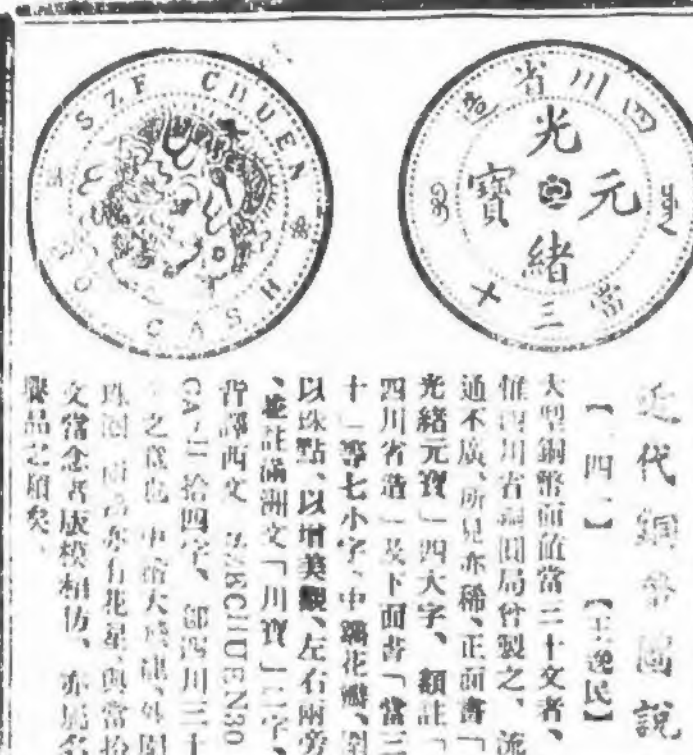 SZE CHUEN
30 CASH
四川省造
光緒元寶
當三十
近代銅幣圖說
【四】【王逸民】
大型銅幣面値當三十文者、
惟四川省銅圓局曾製之、流
通不廣、所見亦稀、正面書「
光緒元寶」四大字、額註「
四川省造」及下面書「當三
十」等七小字、中鐫花瓣、圍
以珠點、以增美觀、左右兩旁
、並註滿洲文「川寶」二字、
背譯西文 SZECHUEN30
CASH拾四字、卽四川三十
之意也 中鐫大 龍、外圍
珠圈 兩旁亦有花星、與當拾
文當念者版模相仿、亦屬名
譽品之類矣、